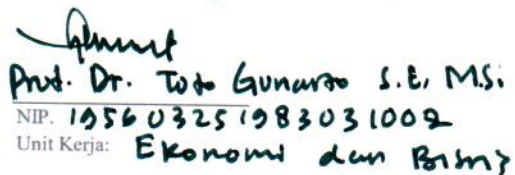 Prof. Dr. Toto Gunarto S.E, M.Si
NIP. 195603251983031002
Unit Kerja: Ekonomi dan Bisnis